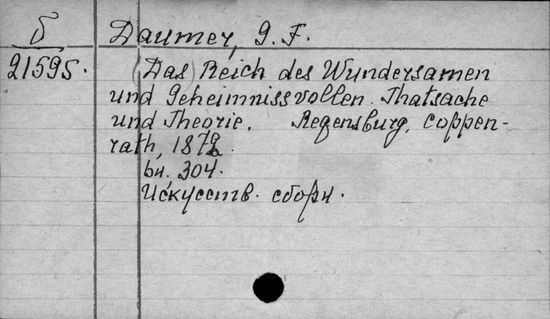 б
21595.
Daumer, G. F.
(Das) Reich des Wundersamen
und Geheimnissvollen. Thatsache
und Theorie. Regensburg, Coppen-
rath, 1872.
bu. 304.
Искусств. сборн.